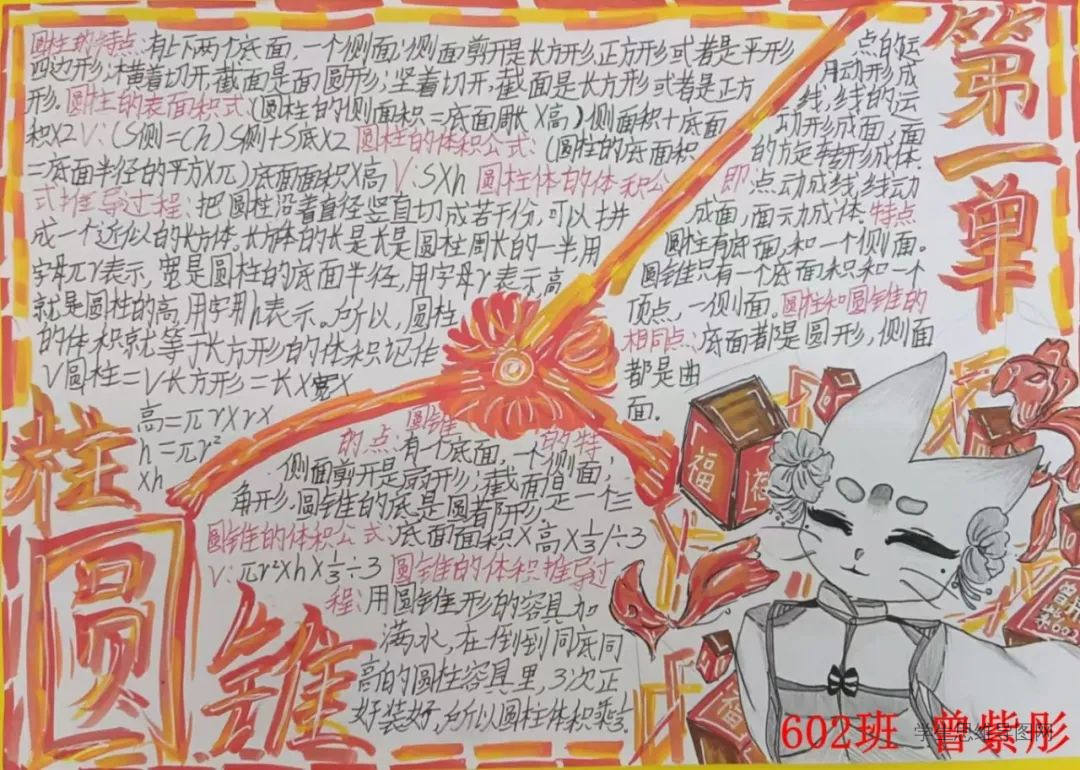 第一单
圆柱的特点:有上下两个底面,一个侧面;侧面剪开是长方形,正方形或者是平形
四边形;横着切开,截面是面圆形;竖着切开,截面是长方形或者是正方
形.圆柱的表面积式:(圆柱的侧面积=底面周长X高)侧面积十底面
积X2 V:(S侧=Ch)S侧+S底X2 圆柱的体积公式:(圆柱的底面积
=底面半径的平方X兀)底面面积X高 V:SXh 圆柱体的体积公
式推导过程:把圆柱沿着直径竖直切成若干份,可以拼
成一个近似的长方体。长方体的长是长是圆柱周长的一半用
字母兀r表示,宽是圆柱的底面半径,用字母r表示高
就是圆柱的高,用字用h表示。所以,圆柱
的体积就等于长方形的体积记作
V圆柱=V长方形=长X宽X
高=兀rXrX
h=兀r²
Xh
点的运
用动形成
线,线的运
动形成面,面
的方定转形成体.
即点动成线,线动
成面,面动成体.特点
圆柱有底面,和一个侧面。
圆锥只有一个底面积和一个
顶点,一侧面。圆柱和圆锥的
相同点:底面都是圆形,侧面
都是曲
面.
柱
圆
锥
圆锥
的点:有一个底面,一个侧面,
的特
侧面剪开是扇形;截面
角形.圆锥的底是圆 是一个三
圆锥的体积公式:底面面积X高X1/3/÷3
V:兀r²XhX1/3÷3 圆锥的体积推导过
程:用圆锥形的容具加
满水,在倒到同底同
高的圆柱容具里,3次正
好装好,所以圆柱体积乘1/3.
福
福
曾
602
602班 曾紫彤
学生思维导图网